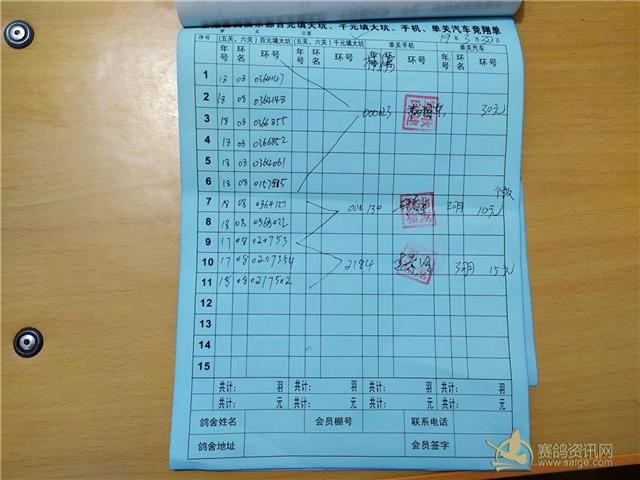 百元填大坑、千元填大坑、手机、单关汽车竞翔单
19年3月30日
序号 (五关、六关)百元填大坑 (五关、六关)千元填大坑 单关手机 单关汽车
年号 环名 环号 年号 环名 环号 年号 环名 环号 年号 环名 环号
1 18 08 0364147
2 18 08 0364148
000123 30元
3 18 08 0366855
4 18 08 0366852
5 18 08 0364061
6 18 08
7 18 08 0364127
10元
8 18 08
9 17 08 020753
10 17 08 0207354
2184 15元
11 18 08 0217502
12
13
14
15
共计: 羽 共计: 羽 共计: 羽 共计: 羽
共计: 元 共计: 元 共计: 元 共计: 元
鸽舍姓名 会员棚号 联系电话
鸽舍地址 会员签字
赛鸽资讯网
www.saige.com